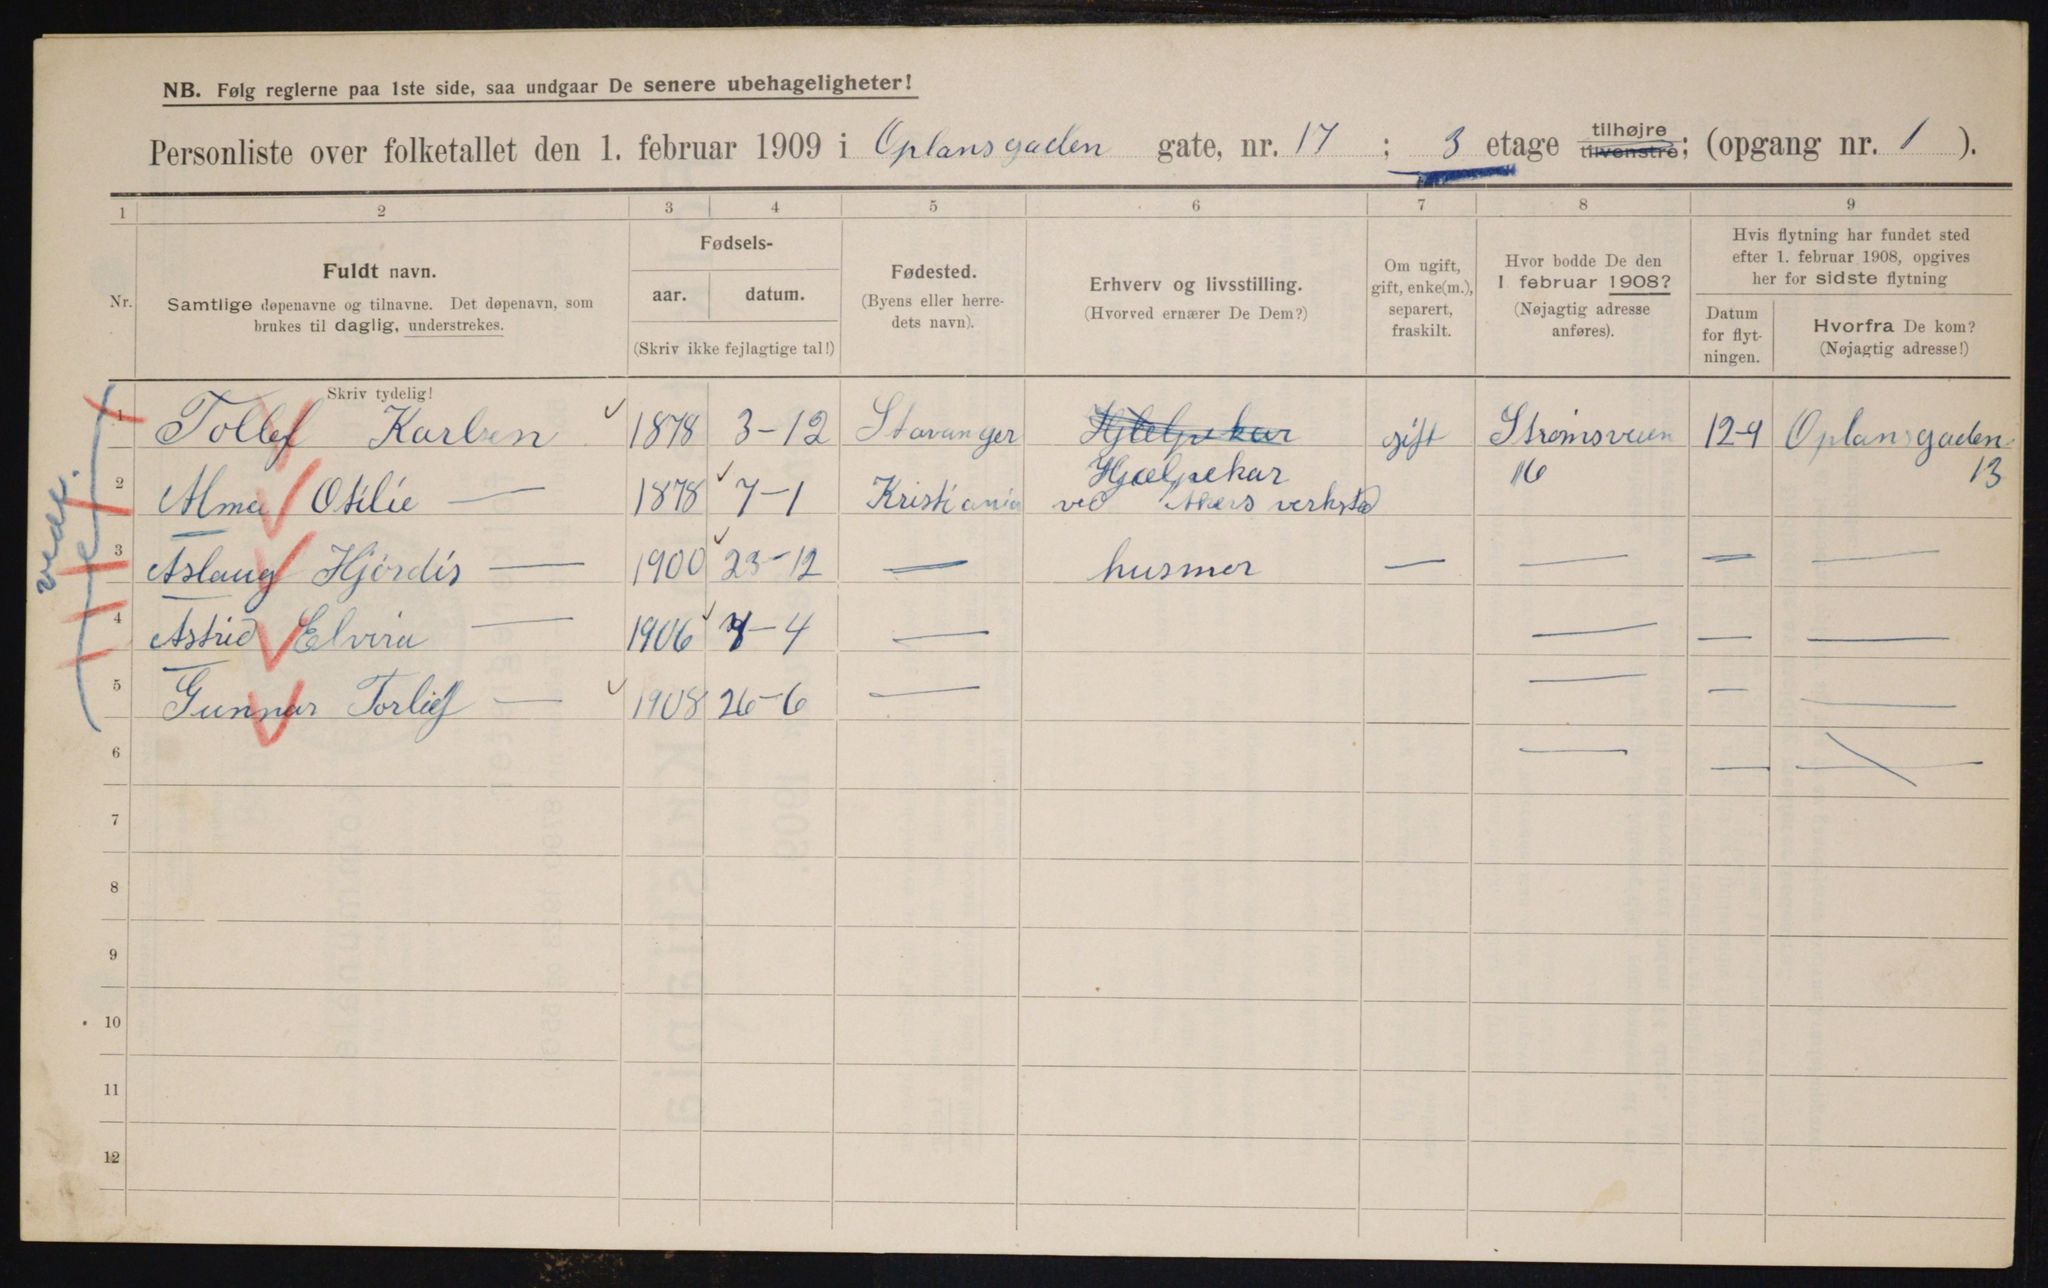 NB. Følg reglerne paa 1ste side, saa undgaar De senere ubehageligheter!
Personliste over folketallet den 1. februar 1909 i Oplansgaden gate, nr. 17 ; 3 etage tilhøjre tilvenstre; (opgang nr. 1 ).
1 2 3 4 5 6 7 8 9
Nr.
Fuldt navn.
Samtlige døpenavne og tilnavne. Det døpenavn, som
brukes til daglig, understrekes.
Fødsels-
aar. datum.
(Skriv ikke fejlagtige tal!)
Fødested.
(Byens eller herre-
dets navn).
Erhverv og livsstilling.
(Hvorved ernærer De Dem?)
Om ugift,
gift, enke(m.),
separert,
fraskilt.
Hvor bodde De den
1 februar 1908?
(Nøjagtig adresse
anføres).
Hvis flytning har fundet sted
efter 1. februar 1908, opgives
her for sidste flytning
Datum
for flyt-
ningen.
Hvorfra De kom?
(Nøjagtig adresse!)
Skriv tydelig!
1 Tollef Karlsen 1878 3-12 Stavanger Hjelpekar gift Strømsveien 12-9 Oplansgaden
Hjælpekar 16 13
2 Alma Otilie — 1878 7-1 Kristiania ved Akers verksted
3 Aslaug Hjørdis — 1900 23-12 — husmor — — — —
4 Astrid Elvira — 1906 7-4 — — — —
5 Gunnar Torlief — 1908 26-6 — — — —
6 — — —
7
8
9
10
11
12